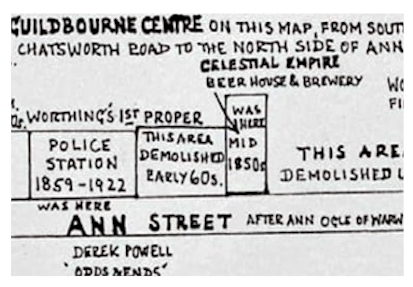 GUILDBOURNE CENTRE ON THIS MAP, FROM SOUT
CHATSWORTH ROAD TO THE NORTH SIDE OF ANN
CELESTIAL EMPIRE
BEER HOUSE & BREWERY
WORTHING'S 1ST PROPER
POLICE
STATION
1859-1922
WAS HERE
THIS AREA
DEMOLISHED
EARLY 60s.
WAS
HERE
MID
1850s
THIS AREA
DEMOLISHED
ANN STREET AFTER ANN OGLE OF WARW
DEREK POWELL
'ODDS & ENDS'